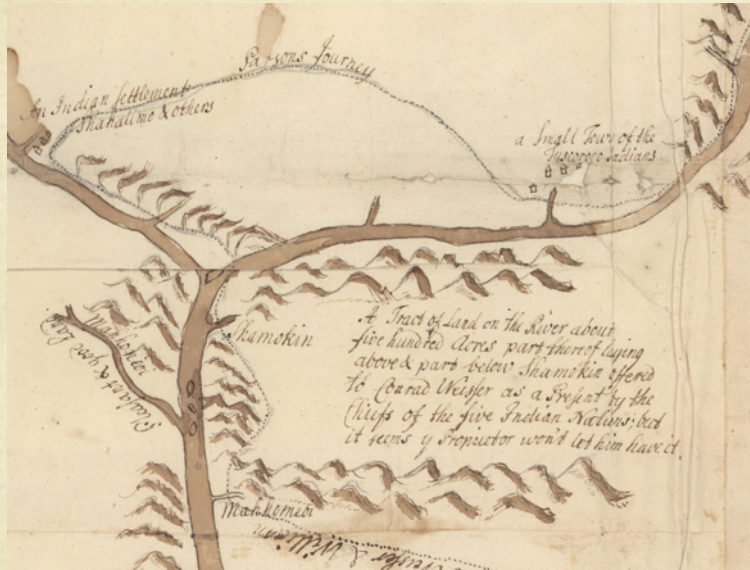 Parsons Journey
An Indian Settlement
Shahalimo & others
a Small Town of the
Tuscororo Indians
Shamokin
A Tract of Land on the River about
five hundred Acres part thereof laying
above & part below Shamokin offered
to Conrad Weisser as a Present by the
Chiefs of the five Indian Nations; but
it seems y Propriotor won't let him have it.